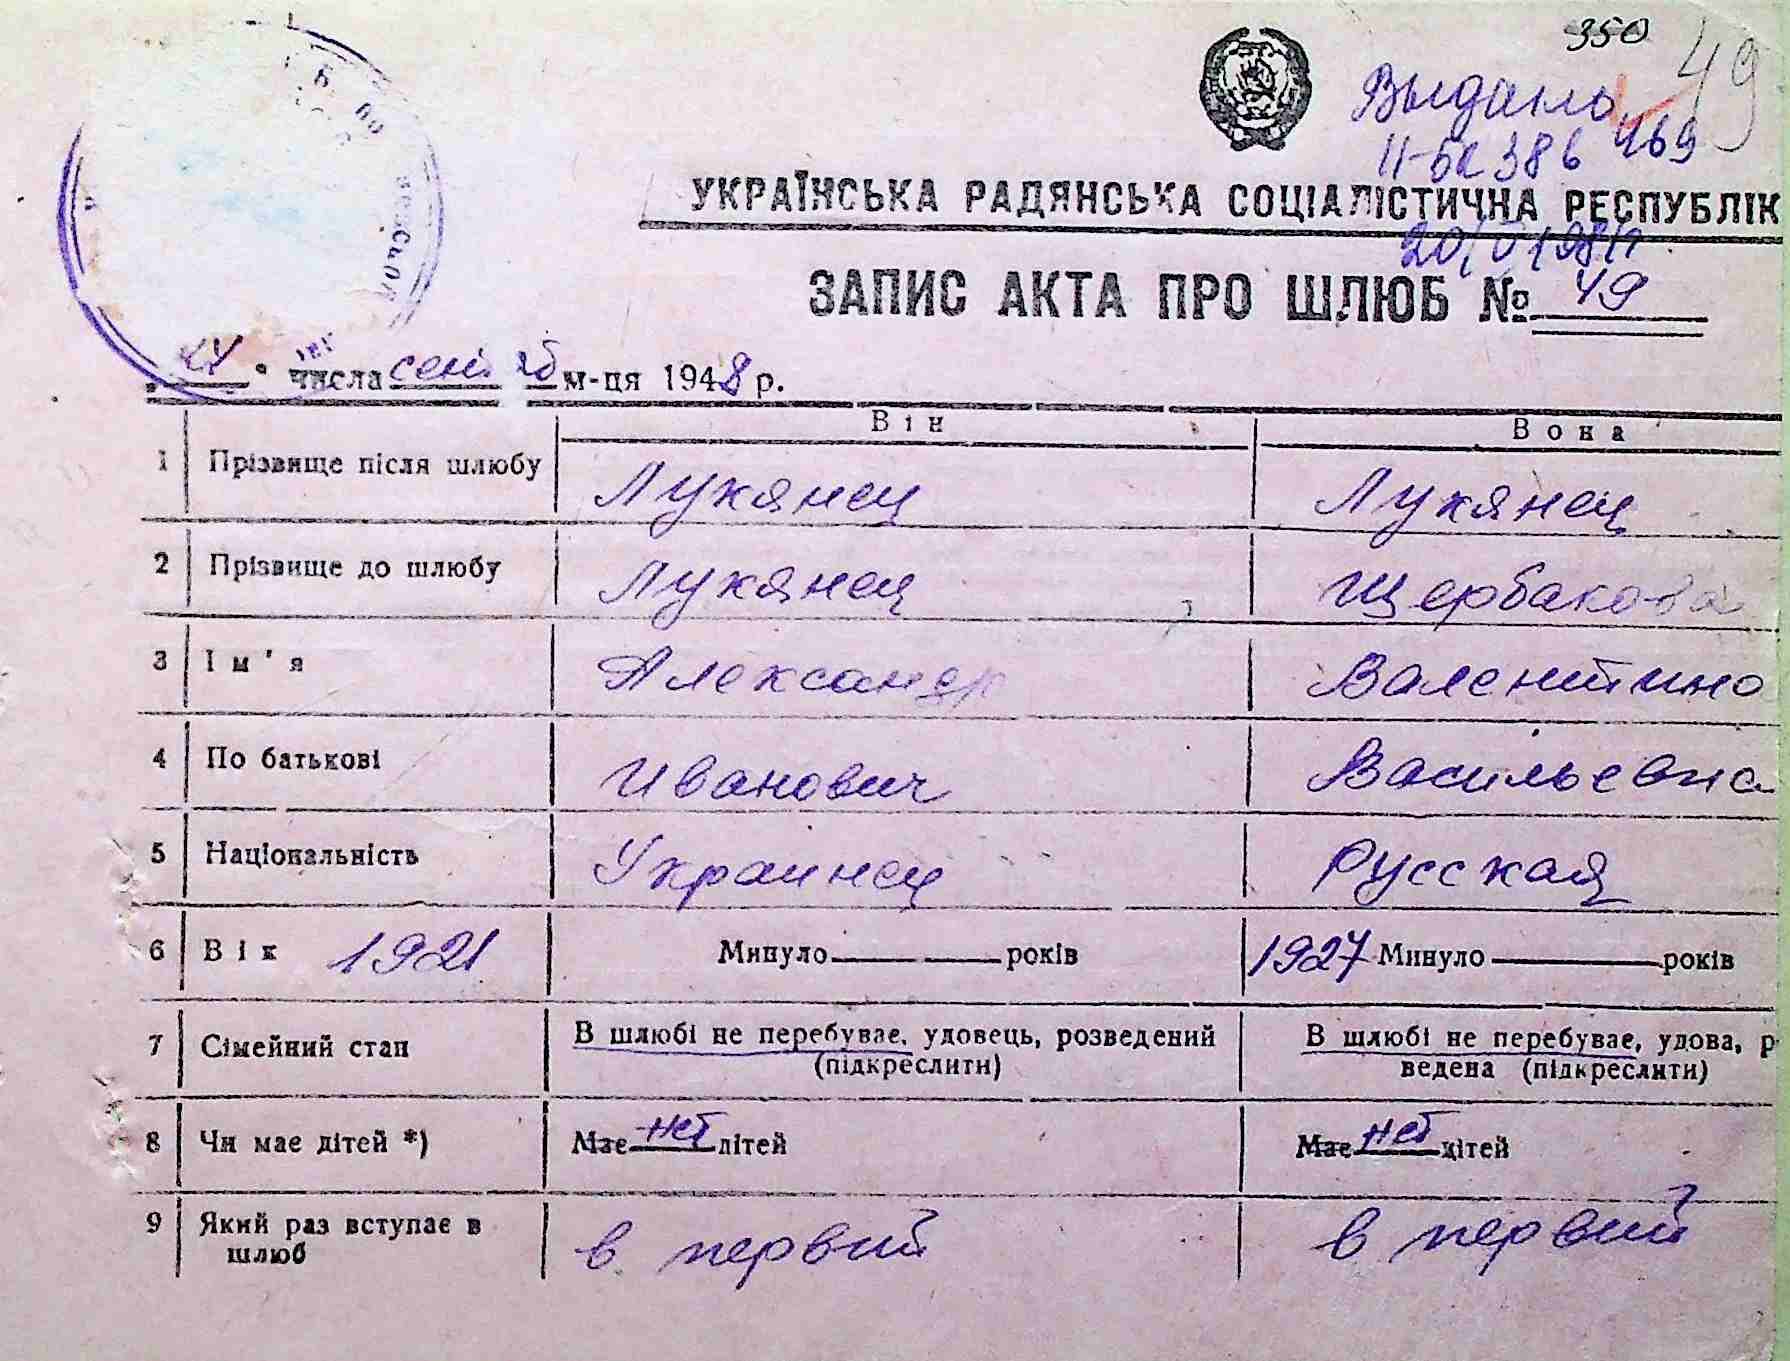 350
49
Выдано
II-БК 386469
УКРАЇНСЬКА РАДЯНСЬКА СОЦІАЛІСТИЧНА РЕСПУБЛІК
ЗАПИС АКТА ПРО ШЛЮБ № 49
числа м-ця 1948 р.
Він Вона
1 Прізвище після шлюбу Лукянец Лукянец
2 Прізвище до шлюбу Лукянец Щербакова
3 Ім'я Александр Валентино
4 По батькові Иванович Васильевна
5 Національність Украинец Русская
6 Вік 1921 Минуло років 1927 Минуло років
7 Сімейний стан В шлюбі не перебуває, удовець, розведений В шлюбі не перебуває, удова, р
(підкреслити) ведена (підкреслити)
8 Чи має дітей *) Має нет дітей Має нет дітей
9 Який раз вступає в в первий в первий
шлюб